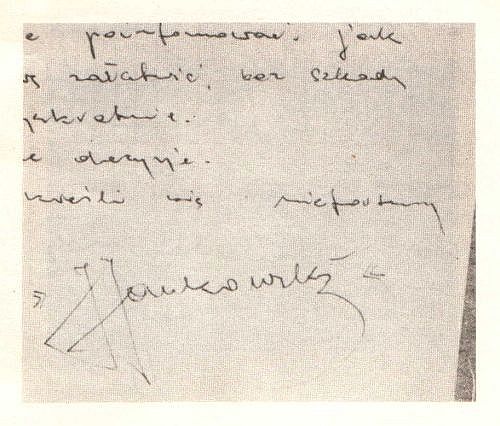 e poinformować, jak
załatwić, bez szkody
yskretnie.
e decyzje.
kreśli się niefortunny
"Jankowski"